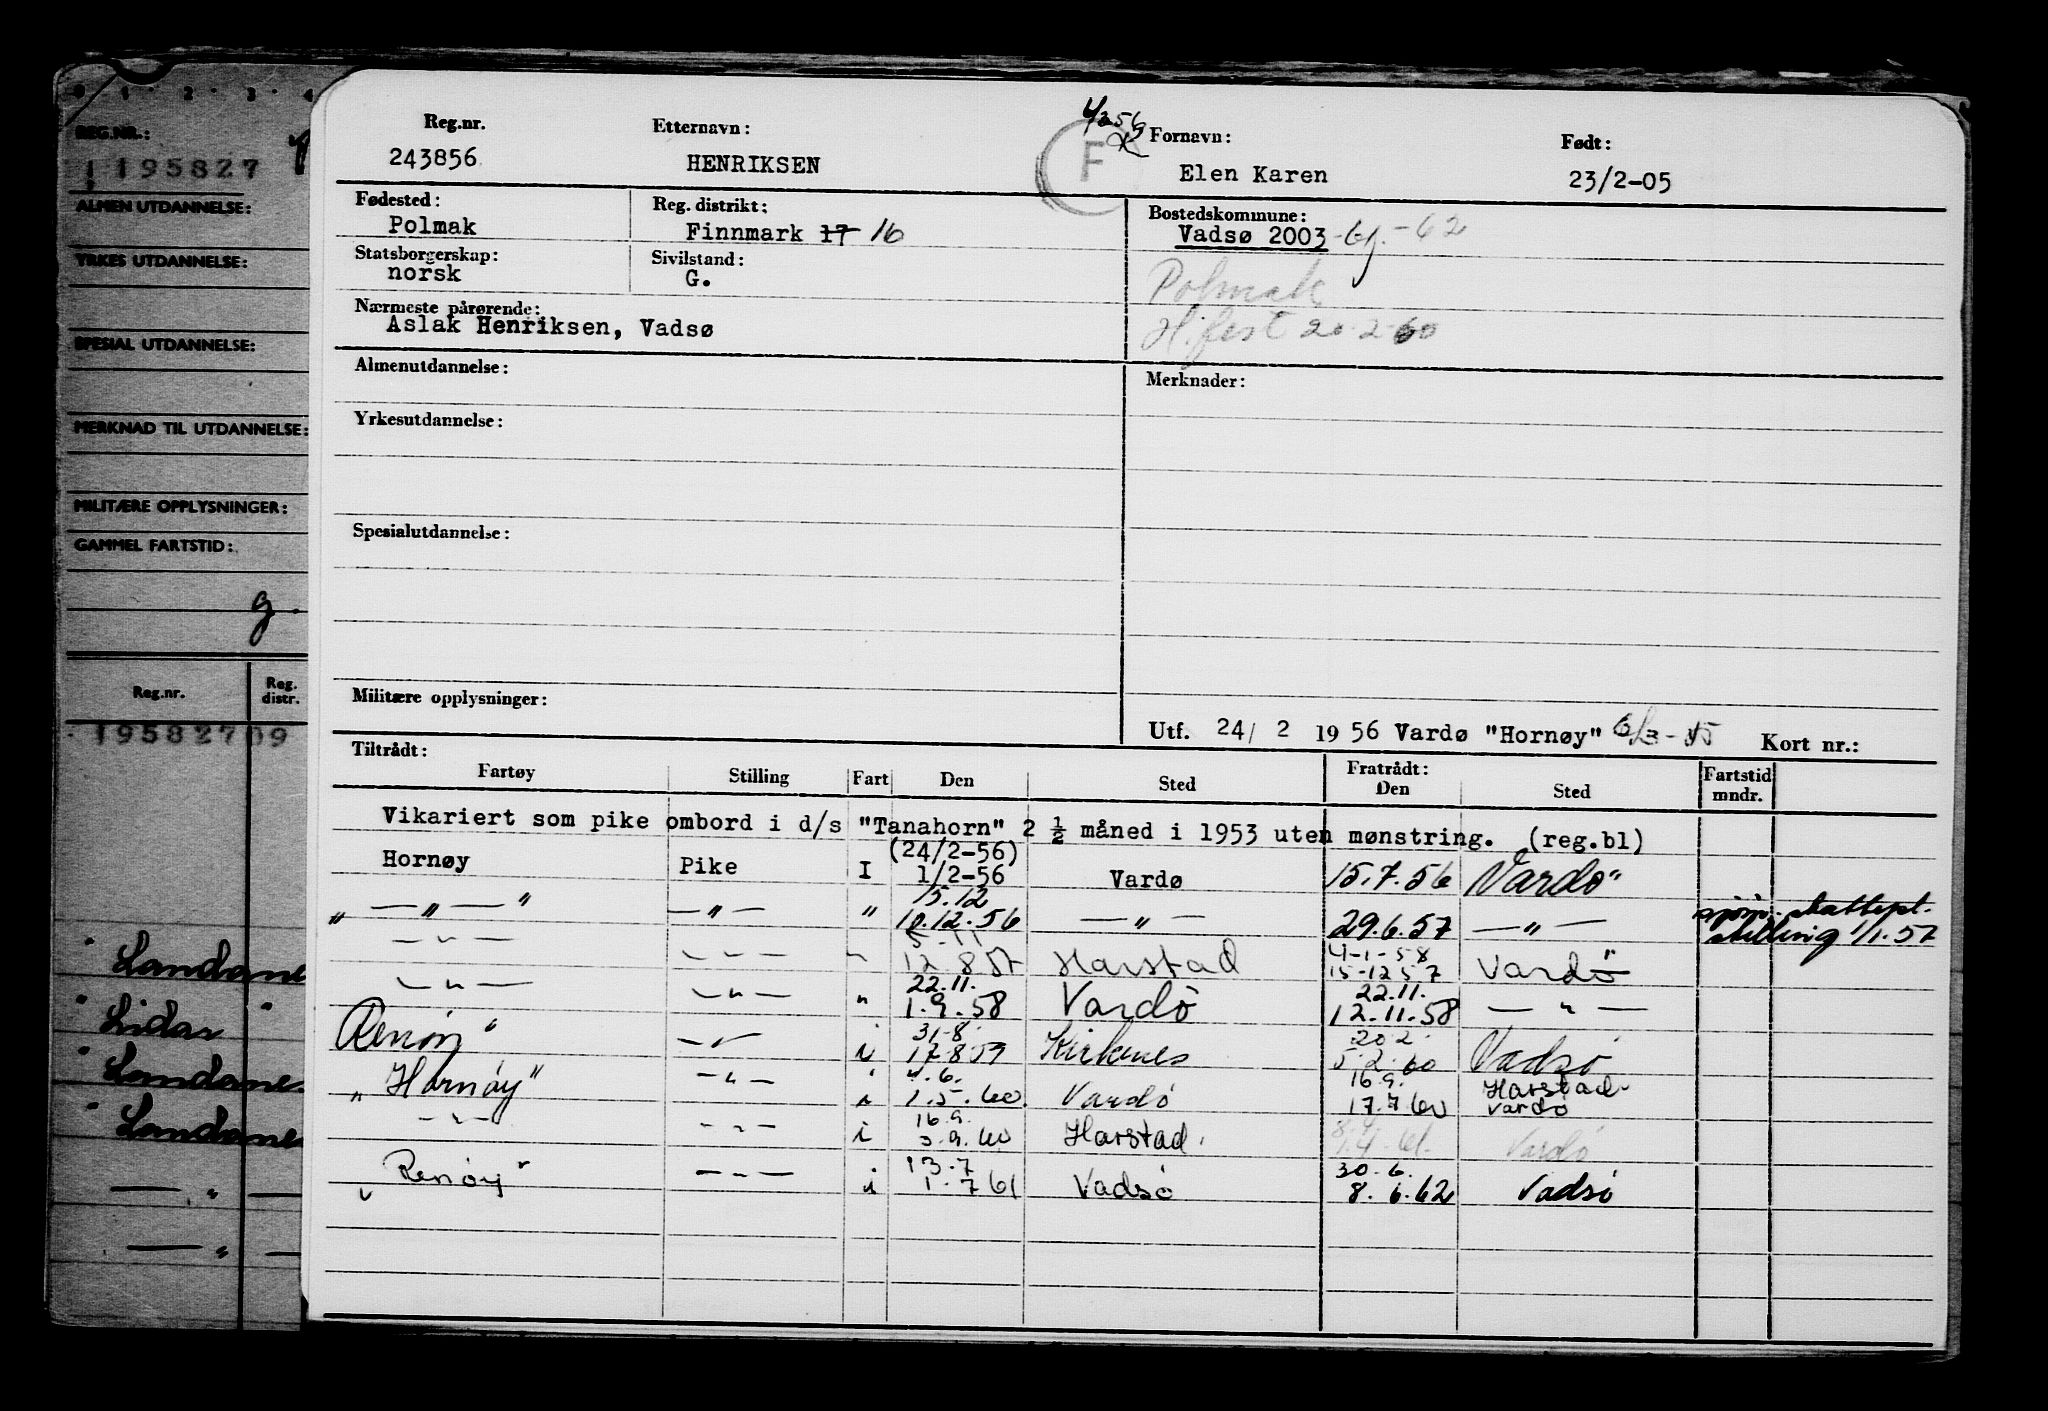 0 1 2 3 4
REG.NR.:
195827
ALMEN UTDANNELSE:
YRKES UTDANNELSE:
SPESIAL UTDANNELSE:
MERKNAD TIL UTDANNELSE:
MILITÆRE OPPLYSNINGER:
GAMMEL FARTSTID:
g.
Reg.nr. Reg. distr.
19582709
Landane
Lidar "
Landane
Landane
— " —
— " —
Reg.nr. Etternavn: F Fornavn: Født:
243856 HENRIKSEN Elen Karen 23/2-05
Fødested: Reg. distrikt: Bostedskommune:
Polmak Finnmark 17 16 Vadsø 2003 -62
Statsborgerskap: Sivilstand: Polmak
norsk G.
Nærmeste pårørende: H.fest 20-2-60
Aslak Henriksen, Vadsø
Almenutdannelse: Merknader:
Yrkesutdannelse:
Spesialutdannelse:
Militære opplysninger:
Utf. 24/ 2 1956 Vardø "Hornøy" Kort nr.:
Tiltrådt: Fratrådt: Fartstid
Fartøy Stilling Fart Den Sted Den Sted mndr.
Vikariert som pike ombord i d/s "Tanahorn" 2 ½ måned i 1953 uten mønstring. (reg.bl)
(24/2-56)
Hornøy Pike I 1/2-56 Vardø 15.7.56 Vardø"
15.12
" — " — " — " — " 10.12.56 — " — 29.6.57 — " — sjøm. skattepl.
stilling 1/1.57
5-11 4-1-58
— " — — " — " 12 8 57 Harstad 15-12 57 Vardø"
22.11. 22.11.
— " — — " — " 1.9.58 Vardø 12.11.58 — " —
31-8. 20 2.
Renøy" — " — i 17-8 59 Kirkenes 5.2.60 Vadsø
4.6. 16.9. Harstad
"Hornøy" — " — i 1.5.60. Vardø 17.7.60 Vardø
16.9. 8.4.
— " — — " — i 3.9.60 Harstad. 1.4.61. Vardø
13.7 30.6.
"Renøy" — " — i 1.7 61 Vadsø 8.6.62 Vadsø